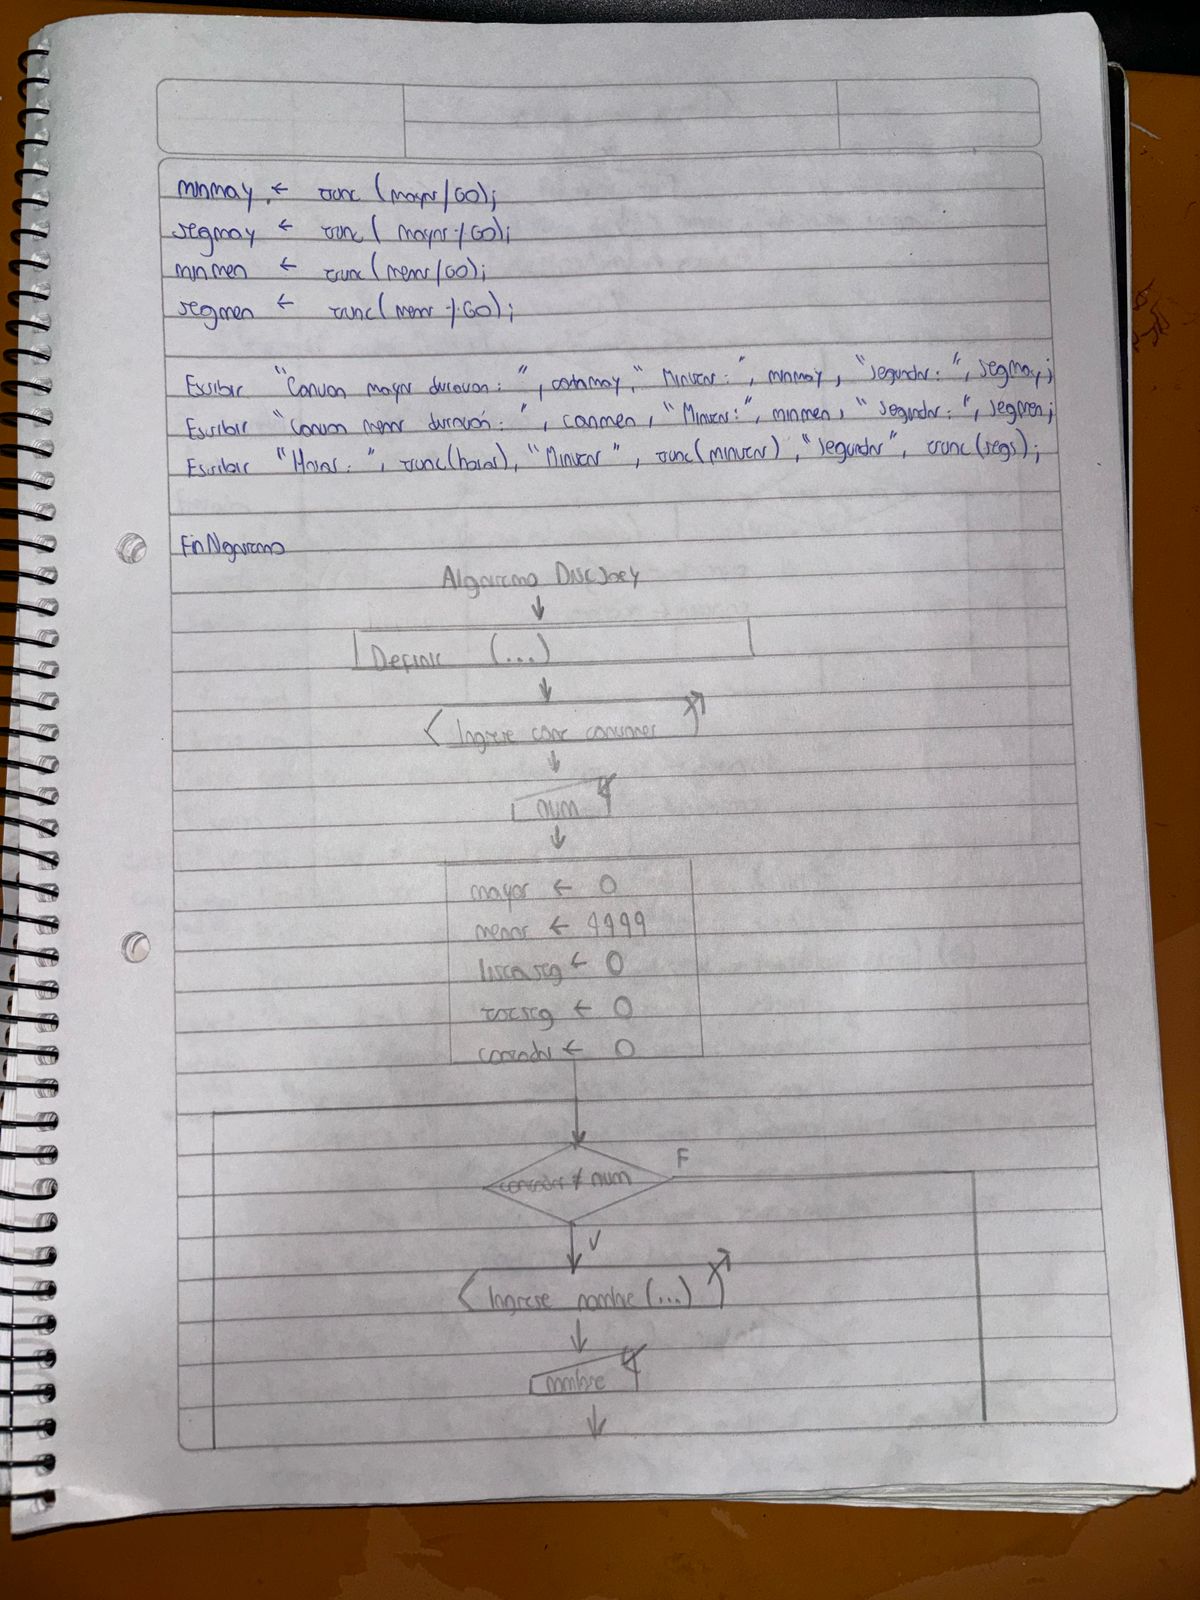 minmay ← trunc (mayor/60);
segmay ← trunc ( mayor % 60);
minmen ← trunc (menor/60);
segmen ← trunc (menor % 60);
Escribir "Cancion mayor duracion: ", canmay, " Minutos: ", minmay, "segundos: ", segmay;
Escribir "Cancion menor duración: ", canmen, "Minutos:", minmen, " segundos: ", segmen;
Escribir "Horas: ", trunc(horas), "Minutos", trunc(minutos), "segundos", trunc(segs);
FinAlgoritmo
Algoritmo DiscJoey
Definir (...)
Ingrese cant canciones
num
mayor ← 0
menor ← 9999
listaseg ← 0
totseg ← 0
contador ← 0
contador ≠ num
F
V
Ingrese nombre (...)
nombre